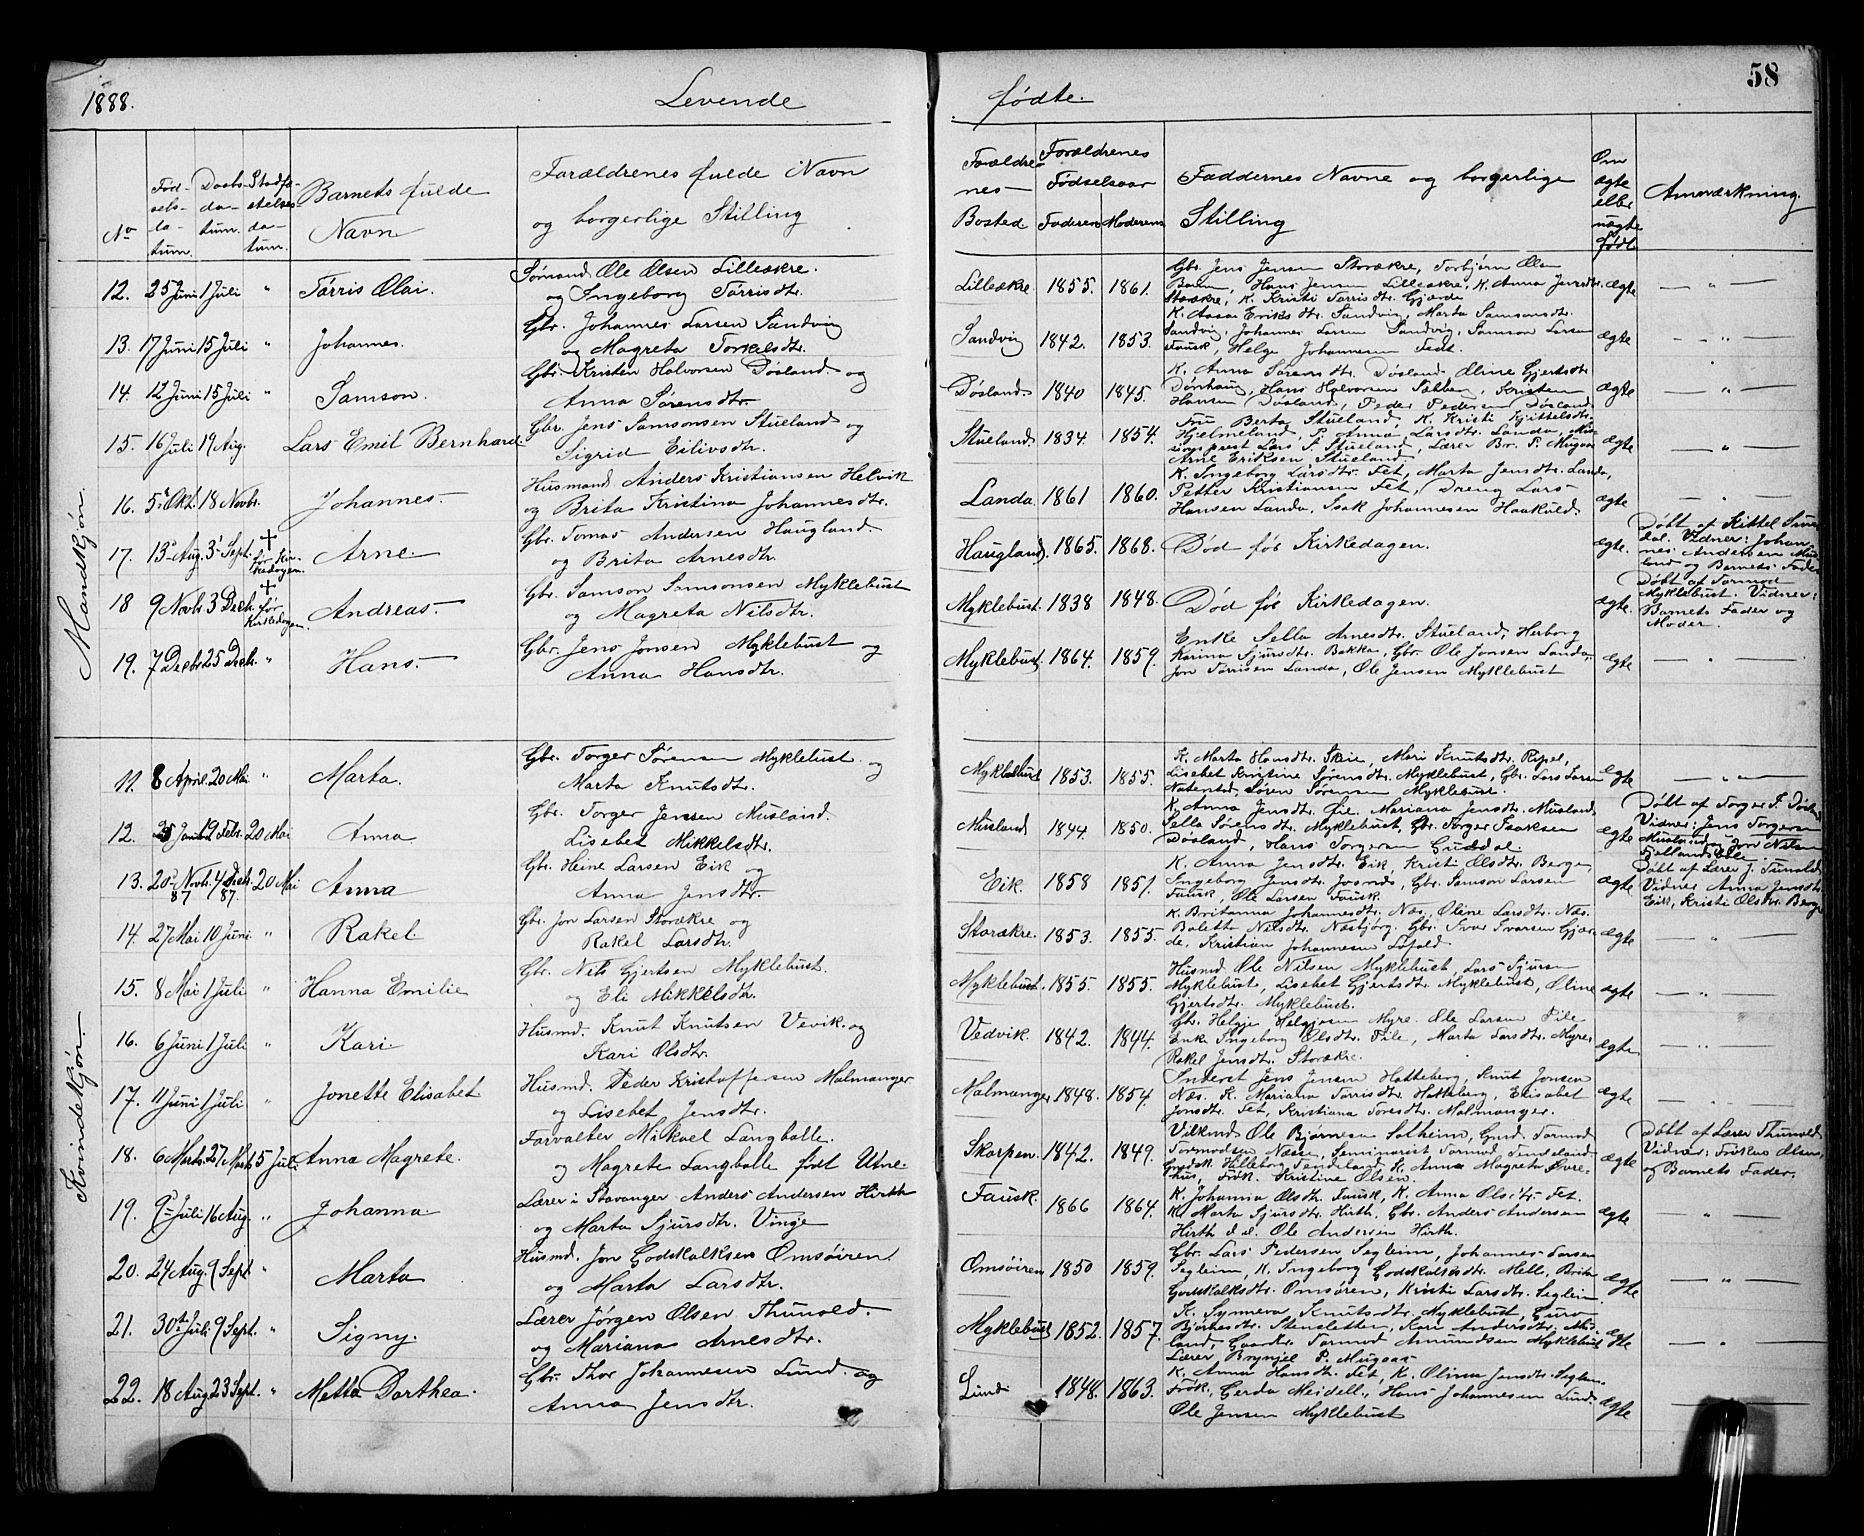 58
1888. Levende fødte.
No
Fødselsdatum. Daabsdatum. Stadfæstelsesdatum.
Barnets fulde Navn
Forældrenes fulde Navn og borgerlige Stilling
Forældrenes Bosted
Forældrenes Fødselsaar
Faderens Moderens
Faddernes Navne og borgerlige Stilling
Om ægte eller uægte født.
Anmærkning.
Mandkjøn.
12. 25 Juni 1 Juli " Tørris Olai. Sømand Ole Olsen Lilleækre.
og Ingeborg Tørrisdtr.
Lilleækre 1855. 1861. Gbr. Jens Jensen Storækre, Torbjørn Olsen
Hans Jensen Lilleækre, K. Anna Jensdtr.
Storækre, K. Kristi Tørrisdtr. Gjærde
ægte — " —
13. 17 Juni 15 Juli " Johannes. Gbr. Johannes Larsen Sandvig
og Magreta Torkelsdtr.
Sandvig 1842. 1853. K. Aasa Eriksdtr. Sandvig, Marta Samsonsdtr.
Sandvig, Johannes Larsen Sandvig, Samson Larsen
Fausk, Helge Johannesen Fedt.
ægte — " —
14. 12 Juni 15 Juli " Samson. Gbr. Kristen Halvorsen Døsland og
Anna Sørensdtr.
Døsland. 1840 1845. K. Anna Sørensdtr. Døsland Oline Gjertsdtr.
Dønhaug, Hans Halvorsen Sæbber, Kristen
Hansen Døsland, Peder Pedersen Døsland
ægte "
15. 16 Juli 19 Aug. Lars Emil Bernhard. Gbr. Jens Samsonsen Stueland og
Sigrid Eilivsdtr.
Stueland 1834. 1854. Fru Berta Stueland, K. Kristi Kjittelsdtr.
Hjelmeland, P. Anna Larsdtr. Landa, Missionsprest
Lars S. Stueland, Lærer Br. P. Mugaas
Arne Eriksen Stueland
ægte "
16. 5te Okt. 18 Novbr. Johannes. Husmand Anders Kristiansen Helvik
og Brita Kristina Johannesdtr.
Landa 1861 1860. K. Ingeborg Larsdtr. Fet, Marta Jensdtr. Landa,
Petter Kristiansen Fet, Dreng Lars
Hansen Landa, Isak Johannesen Haakull.
ægte — " —
17. 13 Aug. 3 Sept. + før Kirkedagen. Arne. Gbr. Tomas Andersen Haugland
og Brita Arnesdtr.
Haugland. 1865. 1868. Død før Kirkedagen. ægte.
Døbt af Kittel
Vidner: Johannes
Andersen
og Barnets Fader
18 9 Novbr. 3 Decb. + før Kirkedagen. Andreas. Gbr. Samson Simonsen Myklebust
og Magreta Nilsdtr.
Myklebust. 1838 1848. Død før Kirkedagen. ægte.
Døbt af Tormod
Myklebust. Vidner:
Barnets Fader og
Moder.
19. 7 Decbr. 25 Decb. " Hans. Gbr. Jens Jonsen Myklebust og
Anna Hansdtr.
Myklebust. 1864. 1859. Enke Sella Arnesdtr. Stueland, Herborg
Karina Sjursdtr. Bakka, Gbr. Ole Jonsen Landa,
Jon Tørrisen Landa, Ole Jensen Myklebust
ægte — " —
Kvindekjøn.
11. 8 April 20 Mai " Marta. Gbr. Torger Sørensen Myklebust og
Marta Knutsdtr.
Myklebust 1853. 1855. K. Marta Hansdtr. Skeie, Mari Knutsdtr. Ripel,
Lisebet Kristine Sørensdtr. Myklebust, Gbr. Lars Larsen
Søren Sørensen Myklebust.
ægte — " —
12. 25 Januar 19 Febr. 20 Mai Anna Gbr. Torger Jensen Musland.
Lisebet Mikkelsdtr.
Musland 1844 1850. K. Anna Jensdtr. Øie, Mariana Jensdtr. Musland,
Sella Sørensdtr. Myklebust, Gbr. Torger Isaksen
Døsland, Hans Torgersen Guddal.
ægte
Døbt af Torger
Vidner: Jens Torgersen
Musland og Jon Nilsen
13. 20 Novbr. 87 4 Decb. 87. 20 Mai Anna Gbr. Heine Larsen Eik og
Anna Jensdtr.
Eik. 1858 1851. K. Anna Jensdtr. Eik, Kristi Olsdtr. Berge,
Ingeborg Jensdtr. Gbr. Samson Larsen
Fausk, Ole Larsen Fausk.
ægte
Døbt af Lærer J. Tunold
Vidner Anna Jensdtr.
Eik, Kristi Olsdtr. Berge
14. 27 Mai 10 Juni " Rakel Gbr. Jon Larsen Storækre og
Rakel Larsdtr.
Storækre. 1853. 1855. K. Britanna Johannesdtr. Næs, Oline Larsdtr. Næs.
Boletta Nilsdtr. Næsbjørg. Gbr. Ivar Ivarsen Gjærde,
Kristian Johannesen Løfald
ægte "
15. 8 Mai 1 Juli " Hanna Emilie Gbr. Nils Gjertsen Myklebust.
og Eli Mikkelsdtr.
Myklebust. 1855. 1855. Husmd. Ole Nilsen Myklebust, Lars Sjursen
Myklebust, Lisebet Gjertsdtr. Myklebust, Oline
Gjertsdtr. Myklebust.
ægte — " —
16. 6 Juni 1 Juli " Kari Husmd. Knut Knutsen Vevik. og
Kari Olsdtr.
Vedvik. 1842. 1844. Gbr. Helgje Helgjesen Myre. Ole Larsen File
Enke Ingeborg Olsdtr. File, Marta Larsdtr. Myre
Rakel Jensdtr. Storækre.
ægte — " —
17. 11 Juni 1 Juli " Jonette Elisabet Husmd. Peder Kristoffersen Malmanger
og Lisebet Jensdtr.
Malmanger 1848. 1854. Inderst Jens Jensen Hatteberg, Knut Jonsen
Næs. K. Mariana Tørrisdtr. Hatteberg, Elisabet
Jonsdtr. Fet, Kristiana Toresdtr. Malmanger.
ægte — " —
18. 6 Marts. 27 Marts 15 Juli Anna Magrete. Forvalter Mikael Langballe.
og Magrete Langballe født Utne.
Skarpen. 1842. 1849. Ole Bjørnesen Solheim, Gmd. Tormod
Tormodsen Næsse, Seminarist Tormod Tendeland
Hilleborg Tendeland K. Anna Magrete Øvrehus,
Frøk. Kristine Olsen.
ægte
Døbt af Lærer Thunold
Vidner: Frøken Olsen,
og Barnets Fader.
19. 9 Juli 16 Aug. " Johanna. Lærer i Stavanger Anders Andersen Hirth
og Marta Sjursdtr. Vinge
Fausk. 1866 1864. K. Johanna Olsdtr. Fausk, K. Anna Olsdtr. Fet.
K. Marta Sjursdtr. Hirth, Gbr. Anders Andersen
Hirth d. æ. Ole Andersen Hirth.
ægte "
20. 24 Aug. 9 Sept " Marta Husmd. Jon Godskalksen Omsøiren
og Marta Larsdtr.
Omsøiren 1850 1859. Gbr. Lars Pedersen Segleim, Johannes Larsen
Segleim, K. Ingeborg Godskalksdtr. Mell, Brita
Godskalksdtr. Omsøren, Kristi Larsdtr. Segleim.
ægte — " —
21. 30te Juli 9 Sept. " Signy. Lærer Jørgen Olsen Thunold.
og Mariana Arnesdtr.
Myklebust 1852. 1857. K. Synneva Knutsdtr. Myklebust, Guro
Bjørnesdtr. Stensletten, Kari Andersdtr. Musland,
Gaardbr. Tormod Amundsen Myklebust
Lærer Brynjel P. Mugaas
ægte "
22. 18 Aug 23 Sept. " Metta Dorthea. Gbr. Thor Johannesen Lund og
Anna Jensdtr.
Lund 1848. 1863. K. Anna Hansdtr. Fet, K. Olina Jensdtr. Segleim
Frøk. Gerda Meidell, Hans Johannesen Lund
Ole Jensen Myklebust
ægte